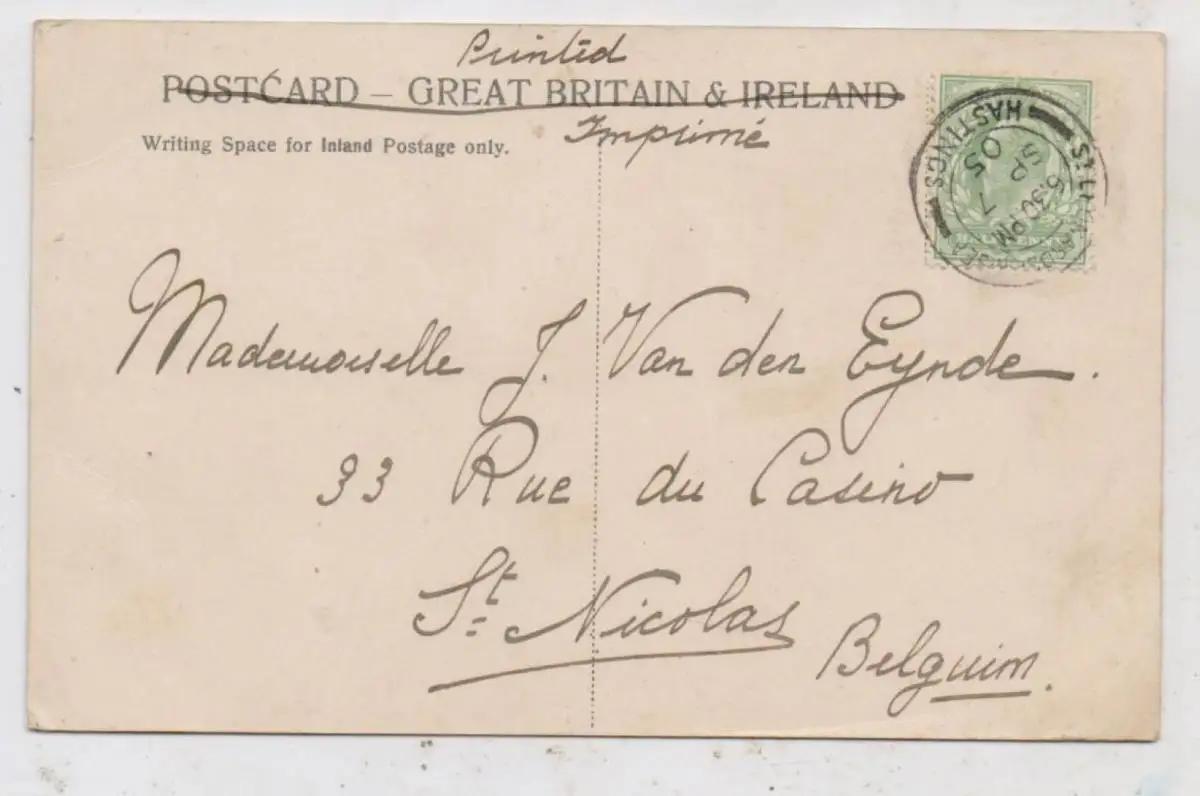 Printed
POSTCARD – GREAT BRITAIN & IRELAND
Imprimé
Writing Space for Inland Postage only.
HASTINGS
ST LEONARDS-ON-SEA
6.30 PM
7
SP
05
Mademoiselle J. Van den Eynde.
33 Rue du Casino
St Nicolas
Belguim.